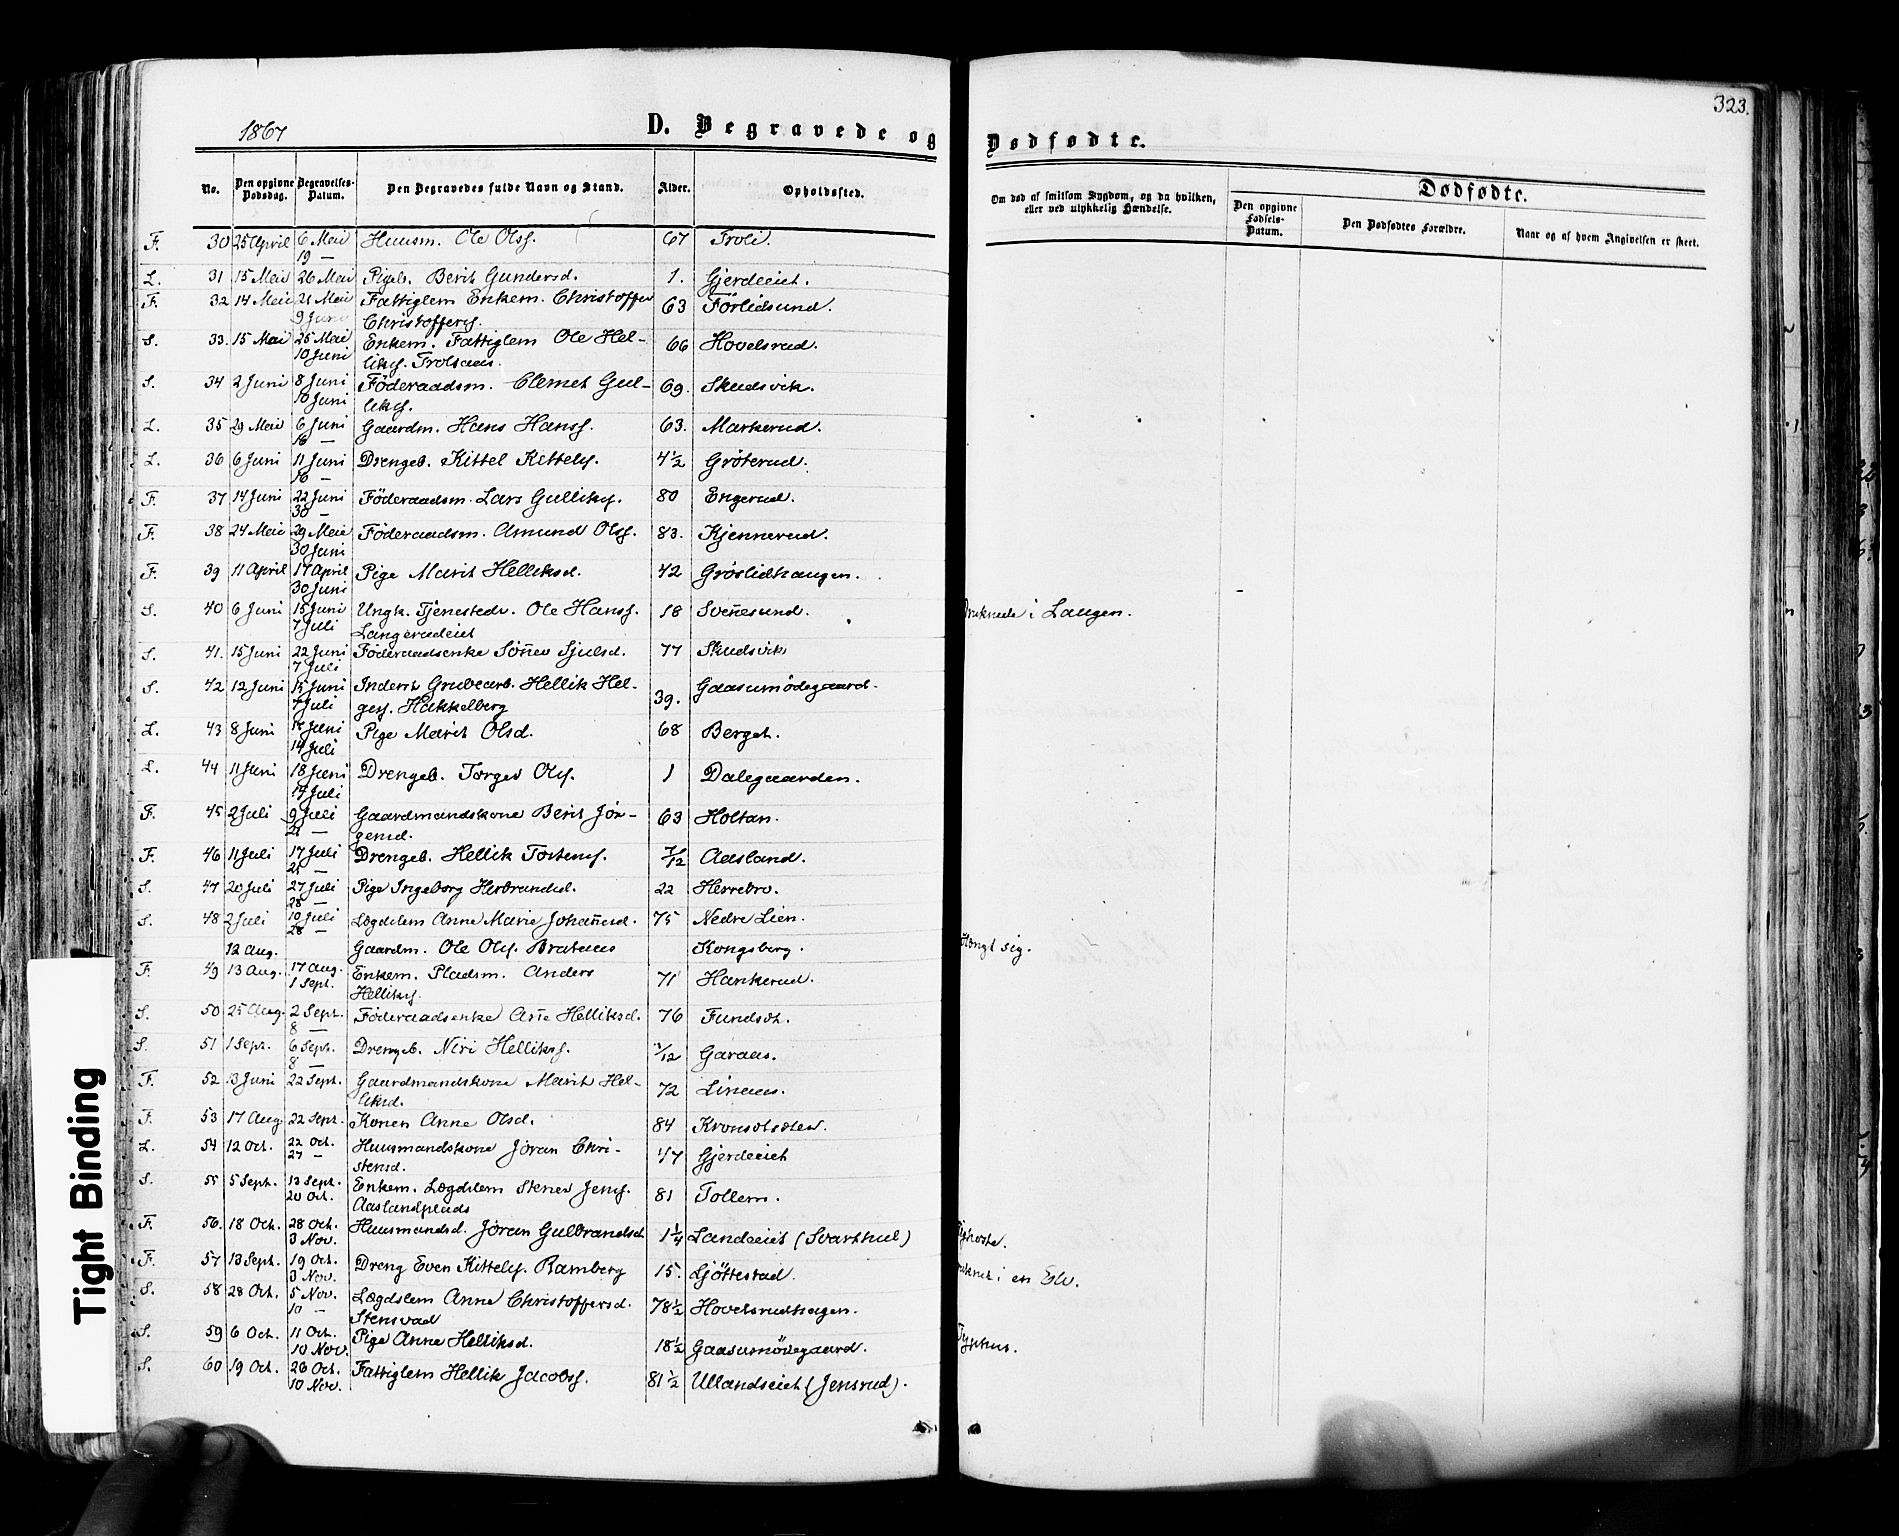 323.
1867
D. Begravede og Dødfødte.
No. Den opgivne Dødsdag. Begravelses-Datum. Den Begravedes fulde Navn og Stand. Alder. Opholdssted. Om død af smitsom Sygdom, og da hvilken, eller ved ulykkelig Hændelse. Dødfødte.
Den opgivne Fødsels-Datum. Den Dødfødtes Forældre. Naar og af hvem Angivelsen er skeet.
F. 30 25 April 6 Mai Huusm. Ole Olss. 67 Troli.
19 —
L. 31 15 Mai 26 Mai Pigeb. Berit Gundersd. 1. Gjerdeeiet.
F. 32 14 Mai 21 Mai Fattiglem Enkem. Christoffer 63 Förlidsund.
9 Juni Christoffers.
S. 33. 15 Mai 25 Mai Enkem. Fattiglem Ole Hel- 66 Hovelsrud.
10 Juni liks. Trolsaas.
S. 34 2 Juni 8 Juni Föderaadsm. Clemet Gul- 69. Skudsvik.
10 Juni liks.
L. 35 29 Mai 6 Juni Gaardm. Hans Hanss. 63. Markerud.
16 —
L. 36 6 Juni 11 Juni Drengeb. Kittel Kittels. 4½ Gröterud.
16 —
F. 37 14 Juni 22 Juni Föderaadsm. Lars Gulliks. 80 Engerud.
30 —
F. 38 24 Mai 29 Mai Föderaadsm. Amund Olss. 83. Kjennerud.
30 Juni
F. 39 11 April 17 April Pige Marit Helliksd. 42 Gröslidhaugen.
30 Juni
S. 40 6 Juni 15 Juni Ungk. Tjenestedr. Ole Hanss. 18 Svenesund. Druknede i Laugen.
7 Juli Langerudeiet
S. 41. 15 Juni 22 Juni Föderaadsenke Sönev Sjulsd. 77 Skudsvik
7 Juli
S. 42 12 Juni 15 Juni Inderst Grubearb. Hellik Hel- 39. Gaasumödegaard.
7 Juli ges. Hakkelberg
L. 43 8 Juni 14 Juni Pige Marit Olsd. 68 Berget.
14 Juli
L. 44 11 Juni 18 Juni Drengeb. Torger Ols. 1 Dalegaarden.
14 Juli
F. 45 2 Juli 9 Juli Gaardmandskone Berit Jör- 63 Holtan.
21 — gensd.
F. 46 11 Juli 17 Juli Drengeb. Hellik Torstens. 7/12 Aasland.
21 —
S. 47 20 Juli 27 Juli Pige Ingeborg Herbrandsd. 22 Herrebro.
28 —
S. 48 2 Juli 10 Juli Lægdslem Anne Marie Johannesd. 75 Nedre Lien.
28 —
12 Aug. Gaardm. Ole Ols. Brataas Kongsberg. Hængt sig.
F. 49 13 Aug. 17 Aug. Enkem. Pladsm. Anders 71 Hankerud.
1 Sept. Helliks.
S. 50 25 Aug. 2 Sept. Föderaadsenke Aase Helliksd. 76 Fundset.
8 —
S. 51 1 Sept. 6 Sept. Drengeb. Niri Helliks. Garaas.
8 —
F. 52 3 Juni 22 Sept. Gaardmandskone Marit Hel- 72 Linaas.
liksd.
F. 53 17 Aug 22 Sept. Konen Anne Olsd. 84
L. 54 12 Oct. 22 Oct. Huusmandskone Jöran Chri- 47 Gjerdeeiet
27 — stensd.
S. 55 5 Sept. 13 Sept. Enkem. Lægdslem Stener Jens. 81 Tollem.
20 Oct. Aaslandplads
F. 56. 18 Oct. 28 Oct. Huusmandsd. Jöran Gulbrandsd. 1¼ Landeeiet (Svarthul) Kighoste.
3 Nov.
F. 57 13 Sept. 19 Oct. Dreng Even Kittels. Ramberg 15. Ljöttestad. Druknet i en Elv.
3 Nov.
S. 58 28 Oct. 5 Nov. Lægdslem Anne Christoffersd. 78½ Hovelsrudhagen.
10 — Stensvad
S. 59 6 Oct. 11 Oct. Pige Anne Helliksd. 18½ Gaasumödegaard. Typhus.
10 Nov.
S. 60 19 Oct. 26 Oct. Fattiglem Hellik Jacobs. 81½ Ullandseiet (Jensrud).
10 Nov.
Tight Binding